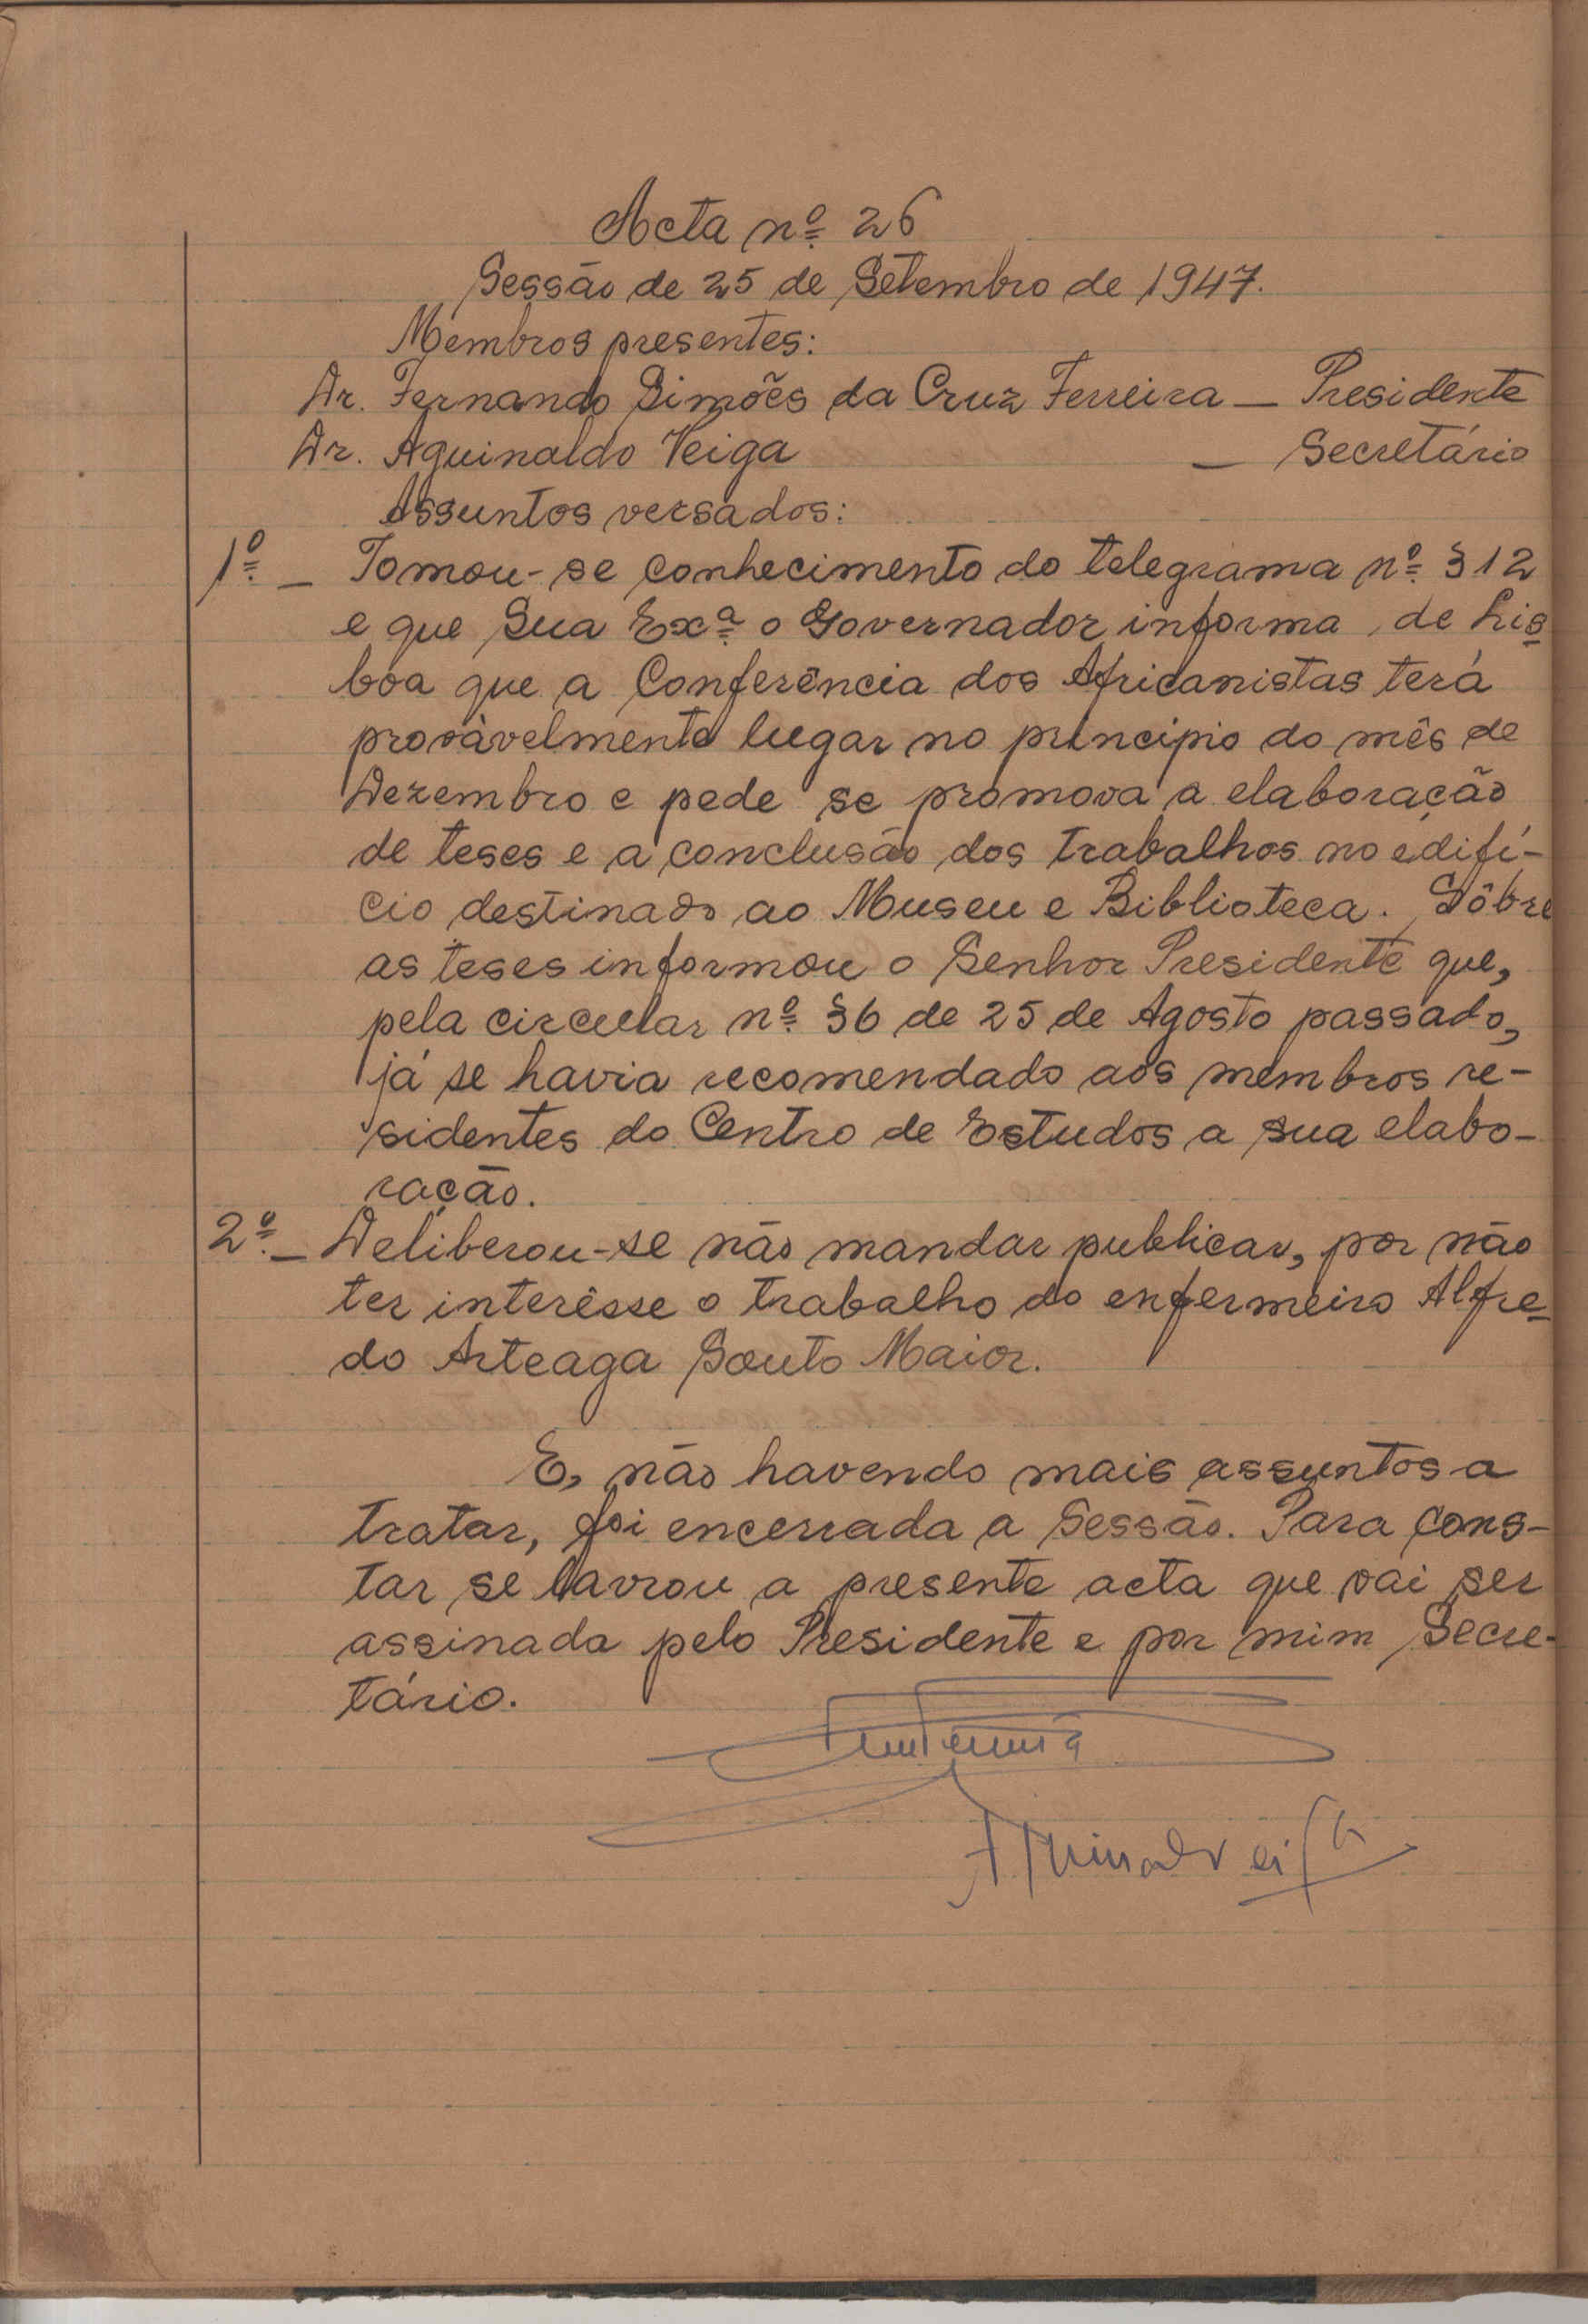 Acta nº 26
Sessão de 25 de Setembro de 1947.
Membros presentes:
Dr. Fernando Simões da Cruz Ferreira — Presidente
Dr. Aguinaldo Veiga — Secretário
Assuntos versados:
1º — Tomou-se conhecimento do telegrama nº 312
e que Sua Exª o Governador informa, de Lis-
boa que a Conferência dos Africanistas terá
provàvelmente lugar no princípio do mês de
Dezembro e pede se promova a elaboração
de teses e a conclusão dos trabalhos no edifí-
cio destinado ao Museu e Biblioteca. Sôbre
as teses informou o Senhor Presidente que,
pela circular nº 36 de 25 de Agosto passado,
já se havia recomendado aos membros re-
sidentes do Centro de Estudos a sua elabo-
ração.
2º — Deliberou-se não mandar publicar, por não
ter interêsse o trabalho do enfermeiro Alfre-
do Arteaga Souto Maior.
E, não havendo mais assuntos a
tratar, foi encerrada a Sessão. Para cons-
tar se lavrou a presente acta que vai ser
assinada pelo Presidente e por mim Secre-
tário.